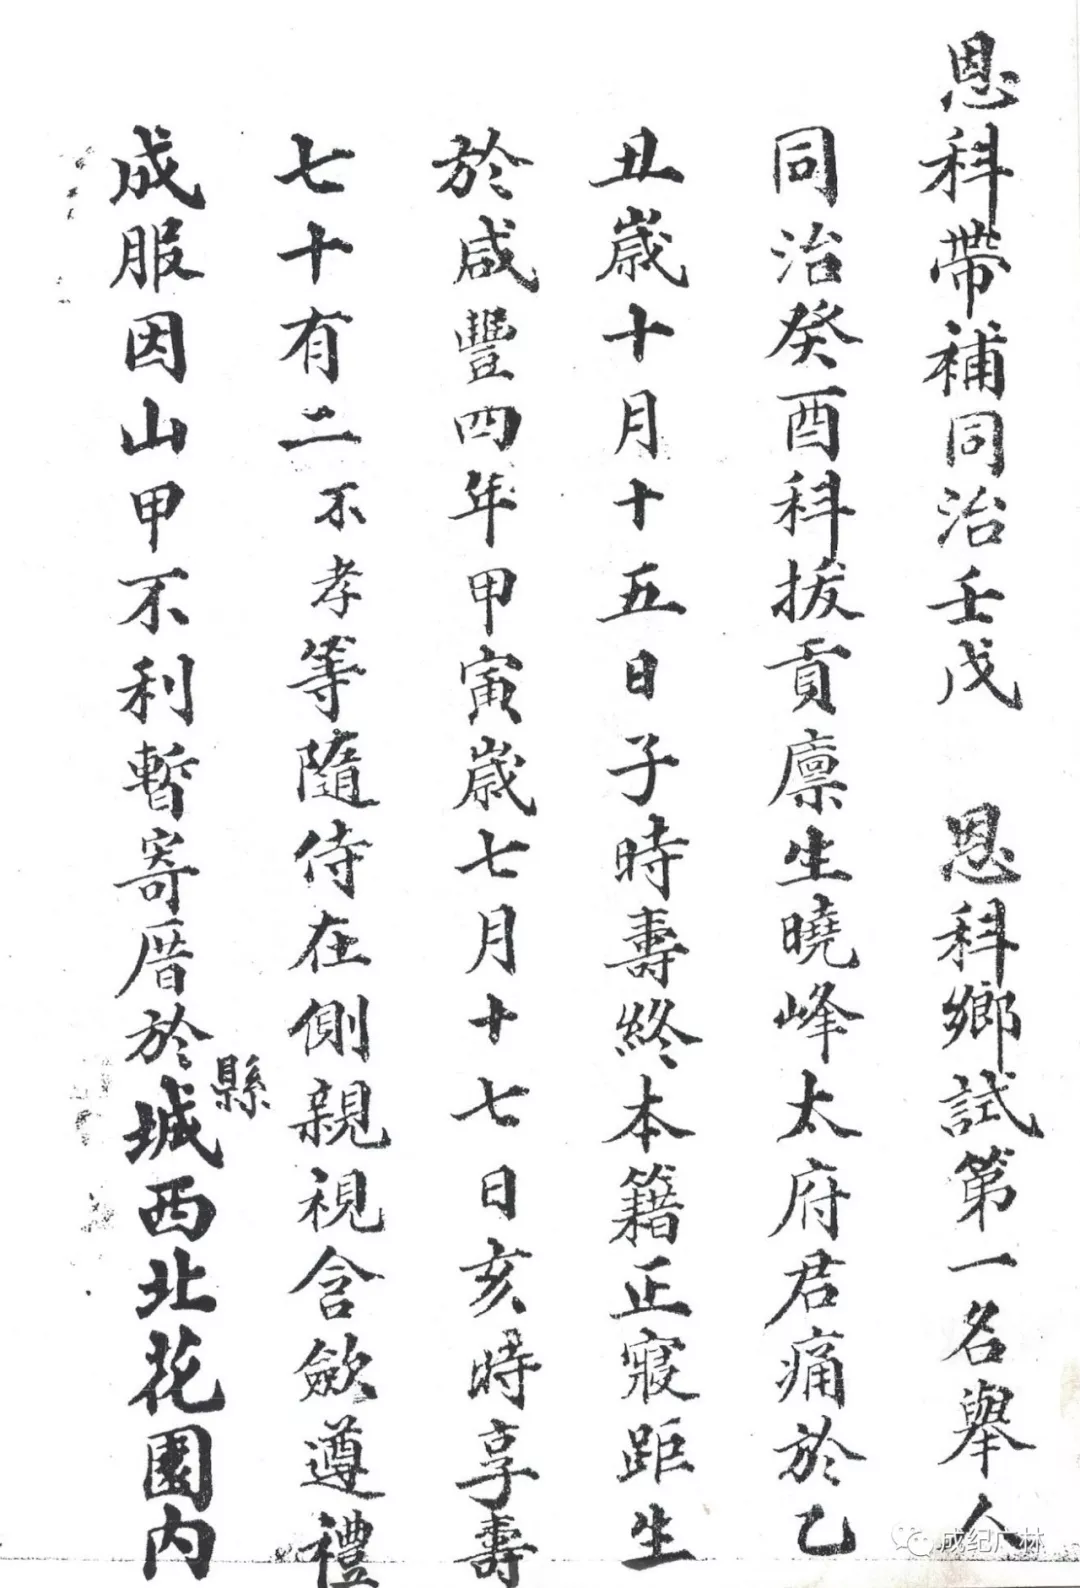 恩科帶補同治壬戌　恩科鄉試第一名舉人
同治癸酉科拔貢廩生曉峰太府君痛於乙
丑歲十月十五日子時壽終本籍正寢距生
於咸豐四年甲寅歲七月十七日亥時享壽
七十有二不孝等隨侍在側親視含歛遵禮
成服因山甲不利暫寄厝於城西北花園内
縣
成纪广林